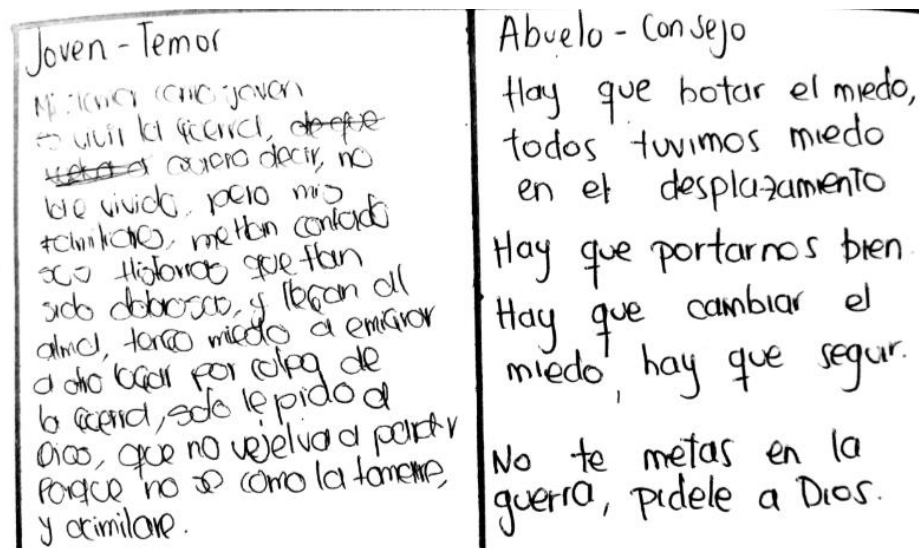 Joven - Temor
Mi temor como joven
es vivir la guerra, de que
quiero decir, no
la e vivido, pero mis
familiares, me Han contado
sus Historias que Han
sido dolorosas, y llegan al
alma, tengo miedo a emigrar
a otro lugar por culpa de
la guerra, solo le pido a
Dios, que no vuelva a pasar
Porque no se como la tomare,
y asimilare.
Abuelo - Consejo
Hay que botar el miedo,
todos tuvimos miedo
en el desplazamiento
Hay que portarnos bien.
Hay que cambiar el
miedo, hay que seguir.
No te metas en la
guerra, pidele a Dios.